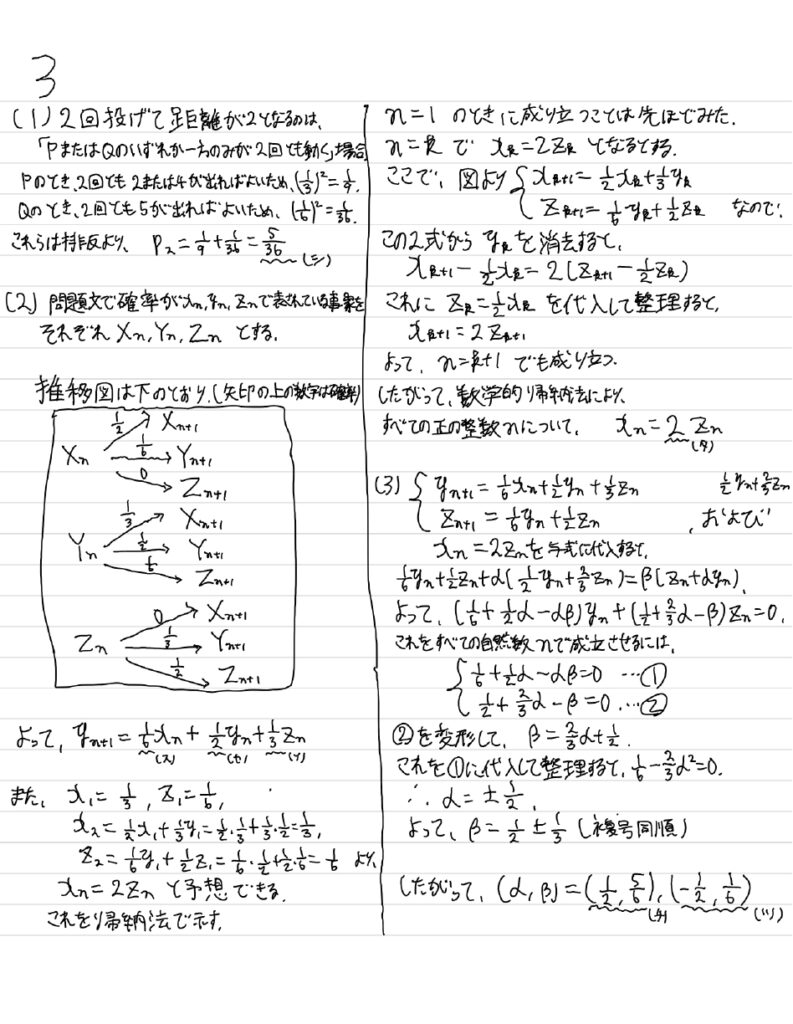 3
(1) 2回投げて距離が2となるのは、
「PまたはQのいずれか一方のみが2回とも動く」場合
Pのとき、2回とも2または4が出ればよいため、(1/3)²=1/9.
Qのとき、2回とも5が出ればよいため、(1/6)²=1/36.
これらは排反より、P₂=1/9+1/36=5/36 (シ)
(2) 問題文で確率がxn,yn,znで表されている事象を
それぞれXn,Yn,Znとする.
推移図は下のとおり.(矢印の上の数字は確率)
Xn 1/2 Xn+1
1/6 Yn+1
0 Zn+1
Yn 1/3 Xn+1
1/2 Yn+1
1/6 Zn+1
Zn 0 Xn+1
1/3 Yn+1
1/2 Zn+1
よって、yn+1=1/6xn+1/2yn+1/3zn
(ス) (セ) (ソ)
また、x₁=1/3, z₁=1/6,
x₂=1/2x₁+1/3y₁=1/2・1/3+1/3・1/2=1/3,
z₂=1/6y₁+1/2z₁=1/6・1/2+1/2・1/6=1/6 より、
xn=2znと予想できる.
これを帰納法で示す.
n=1 のときに成り立つことは先ほどみた.
n=k で xk=2zk となるとする.
ここで、図より { xk+1=1/2xk+1/3yk
zk+1=1/6yk+1/2zk なので、
この2式からykを消去すると、
xk+1-1/2xk=2(zk+1-1/2zk)
これに zk=1/2xk を代入して整理すると、
xk+1=2zk+1
よって、n=k+1でも成り立つ.
したがって、数学的帰納法により、
すべての正の整数nについて、 xn=2zn
(タ)
(3) { yn+1=1/6xn+1/2yn+1/3zn 1/2yn+2/3zn
zn+1=1/6yn+1/2zn ,および
xn=2znを与式に代入すると、
1/6yn+1/2zn+α(1/2yn+2/3zn)=β(zn+αyn).
よって、(1/6+1/2α-αβ)yn+(1/2+2/3α-β)zn=0.
これをすべての自然数nで成立させるには、
{ 1/6+1/2α-αβ=0 …①
1/2+2/3α-β=0 …②
②を変形して、β=2/3α+1/2.
これを①に代入して整理すると、1/6-2/3α²=0.
∴α=±1/2.
よって、β=1/2±1/3 (複号同順)
したがって、(α,β)=(1/2,5/6),(-1/2,1/6)
(チ) (ツ)